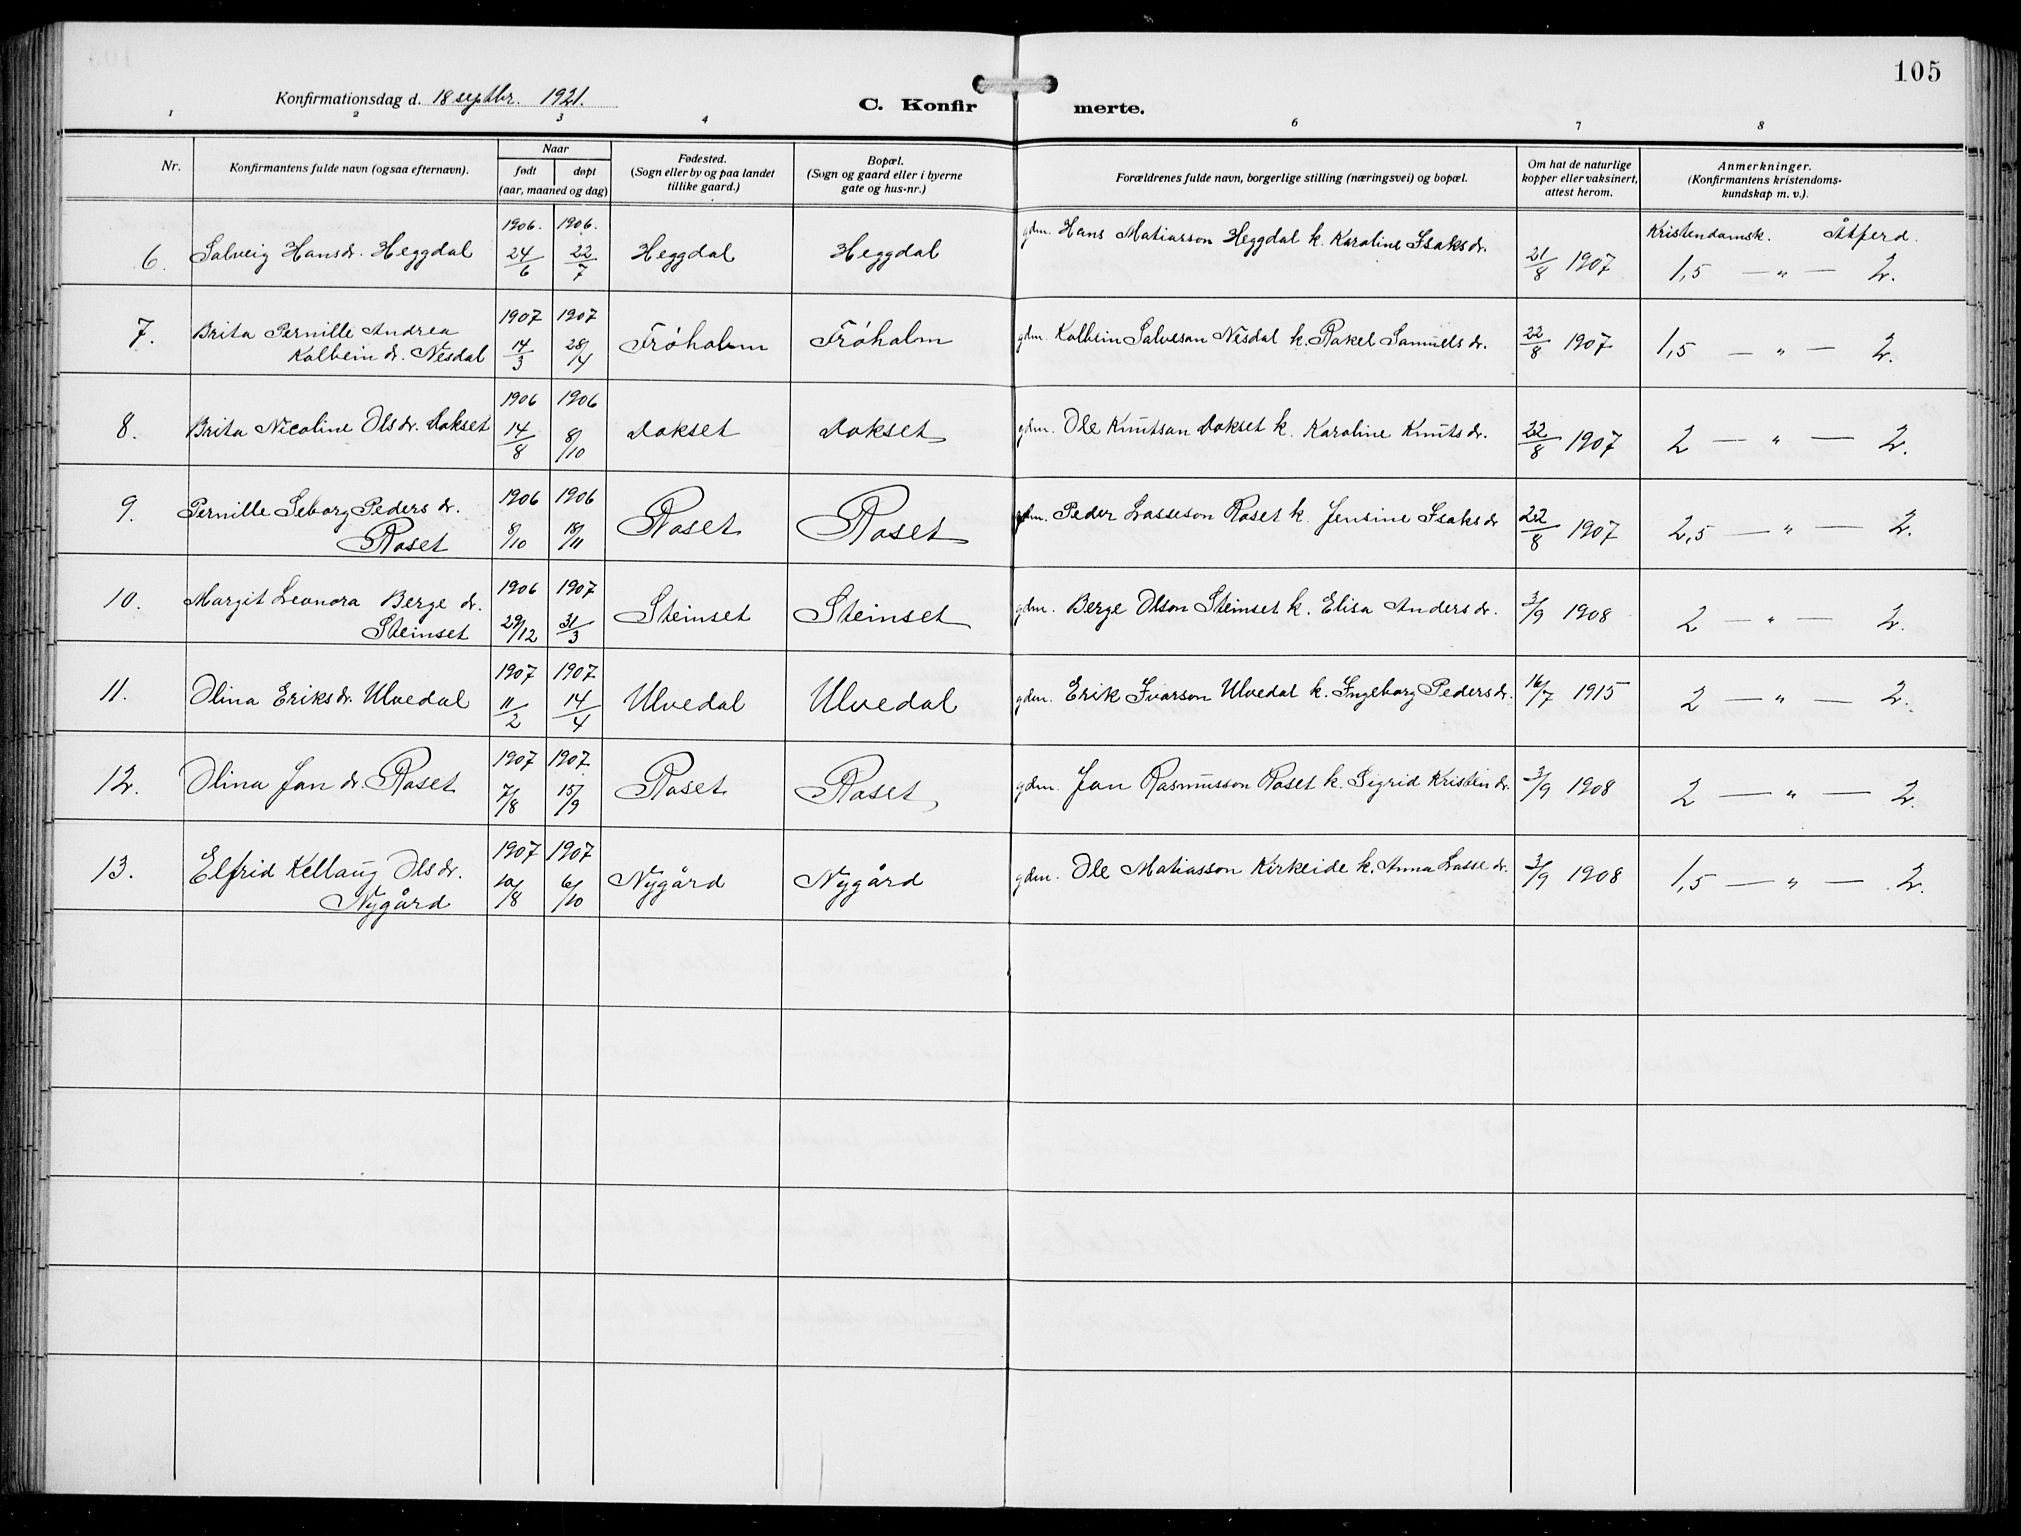 105
Konfirmationsdag d. 18 septbr. 1921.
C. Konfirmerte.
1 2 3 4 5 6 7 8
Nr. Konfirmantens fulde navn (ogsaa efternavn). Naar født døpt (aar, maaned og dag) Fødested. (Sogn eller by og paa landet tillike gaard.) Bopæl. (Sogn og gaard eller i byerne gate og hus-nr.) Forældrenes fulde navn, borgerlige stilling (næringsvei) og bopæl. Om hat de naturlige kopper eller vaksinert, attest herom. Anmerkninger. (Konfirmantens kristendomskundskap m. v.).
Kristendomsk. Åtferd.
6. Salveig Hansdr. Heggdal 1906. 24/6 1906. 22/7 Heggdal Heggdal gdm. Hans Matiasson Heggdal k. Karoline Isaksdr. 21/8 1907 1,5 — " — 2.
7. Brita Pernille Andrea Kolbein dr. Nesdal 1907 14/3 1907 28/14 Frøholm Frøholm gdm. Kolbein Salveson Nesdal k. Rakel Samuels dr. 22/8 1907 1,5 — " — 2.
8. Brita Nicoline Olsdr. Dokset 1906 14/8 1906 8/10 Dokset Dokset gdm. Ole Knutson Dokset k. Karoline Knutsdr. 22/8 1907 2 — " — 2.
9. Pernille Seborg Peders dr. Roset 1906 8/10 1906 18/11 Roset Roset gdm. Peder Lasseson Roset k. Jensine Isaksdr 22/8 1907 2,5 — " — 2.
10. Margit Leonora Berge dr. Steinset 1906 29/12 1907 31/3 Steinset Steinset gdm. Berge Olson Steinset k. Elisa Anders dr. 3/9 1908 2 — " — 2.
11. Olina Eriksdr. Ulvedal 1907 11/2 1907. 14/4 Ulvedal Ulvedal gdm. Erik Ivarson Ulvedal k. Ingeborg Pedersdr. 16/7 1915 2 — " — 2.
12. Olina Jon dr. Roset 1907 7/8 1907. 15/9 Roset Roset gdm. Jon Rasmusson Roset k. Sigrid Kristen dr. 3/9 1908 2 — " — 2.
13. Elfrid Kellaug Olsdr. Nygård 1907 10/8 1907 6/10 Nygård Nygård gdm. Ole Matiasson Kirkeide k. Anna Lasse dr. 3/9 1908 1,5 — " — 2.